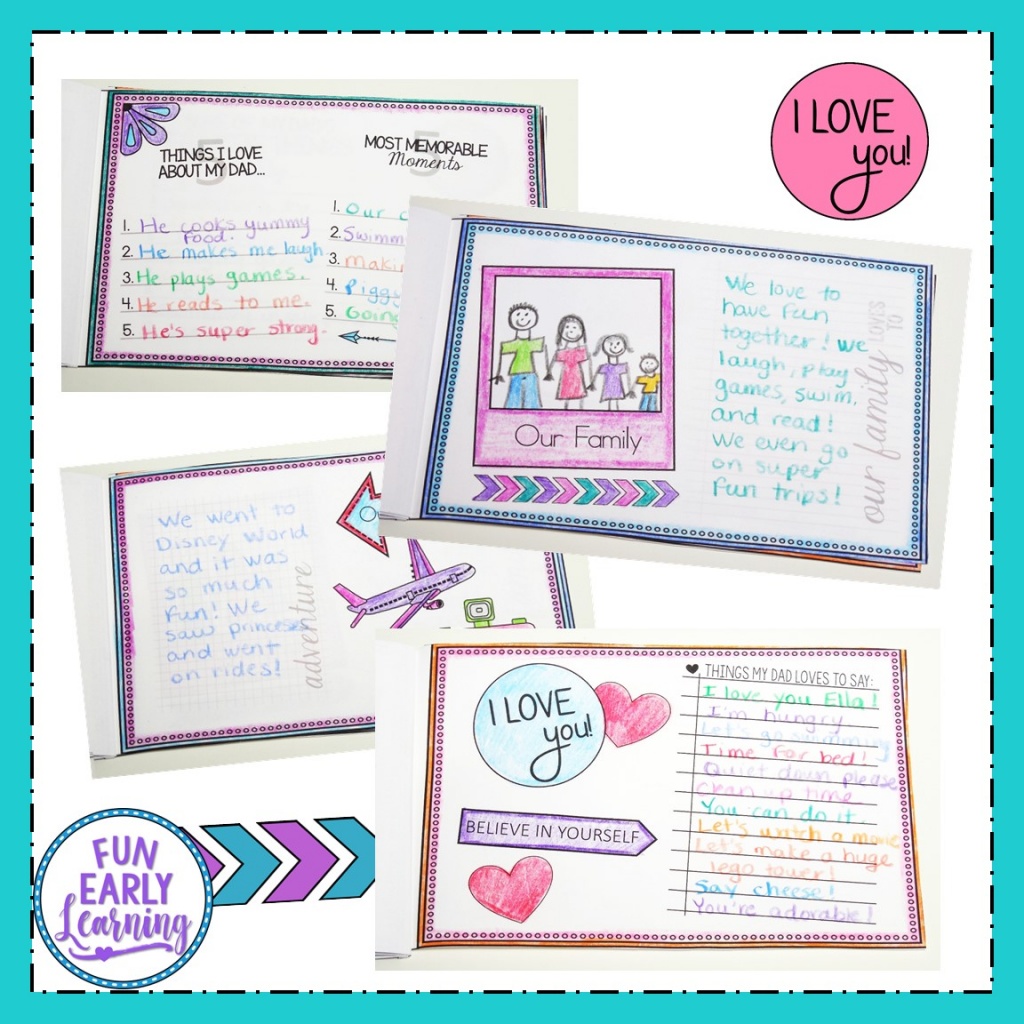 I LOVE
you!
5
THINGS I LOVE
ABOUT MY DAD...
1. He cooks yummy
food.
2. He makes me laugh
3. He plays games.
4. He reads to me.
5. He's super strong.
5
MOST MEMORABLE
Moments
1. Our
2. Swimm
3. Maki
4. Piggy
5. Going
Our Family
We love to
have fun
together! We
laugh, play
games, swim,
and read!
We even go
on super
fun trips!
our family LOVES
TO
We went to
Disney World
and it was
so much
fun! We
saw princess
and went
on rides!
adventure
I LOVE
you!
BELIEVE IN YOURSELF
THINGS MY DAD LOVES TO SAY:
I love you Ella!
I'm hungry
Let's go swimming
Time for bed!
Quiet down please
Clean up time
You can do it.
Let's watch a movie
Let's make a huge
lego tower!
Say cheese!
You're adorable!
FUN
EARLY
Learning